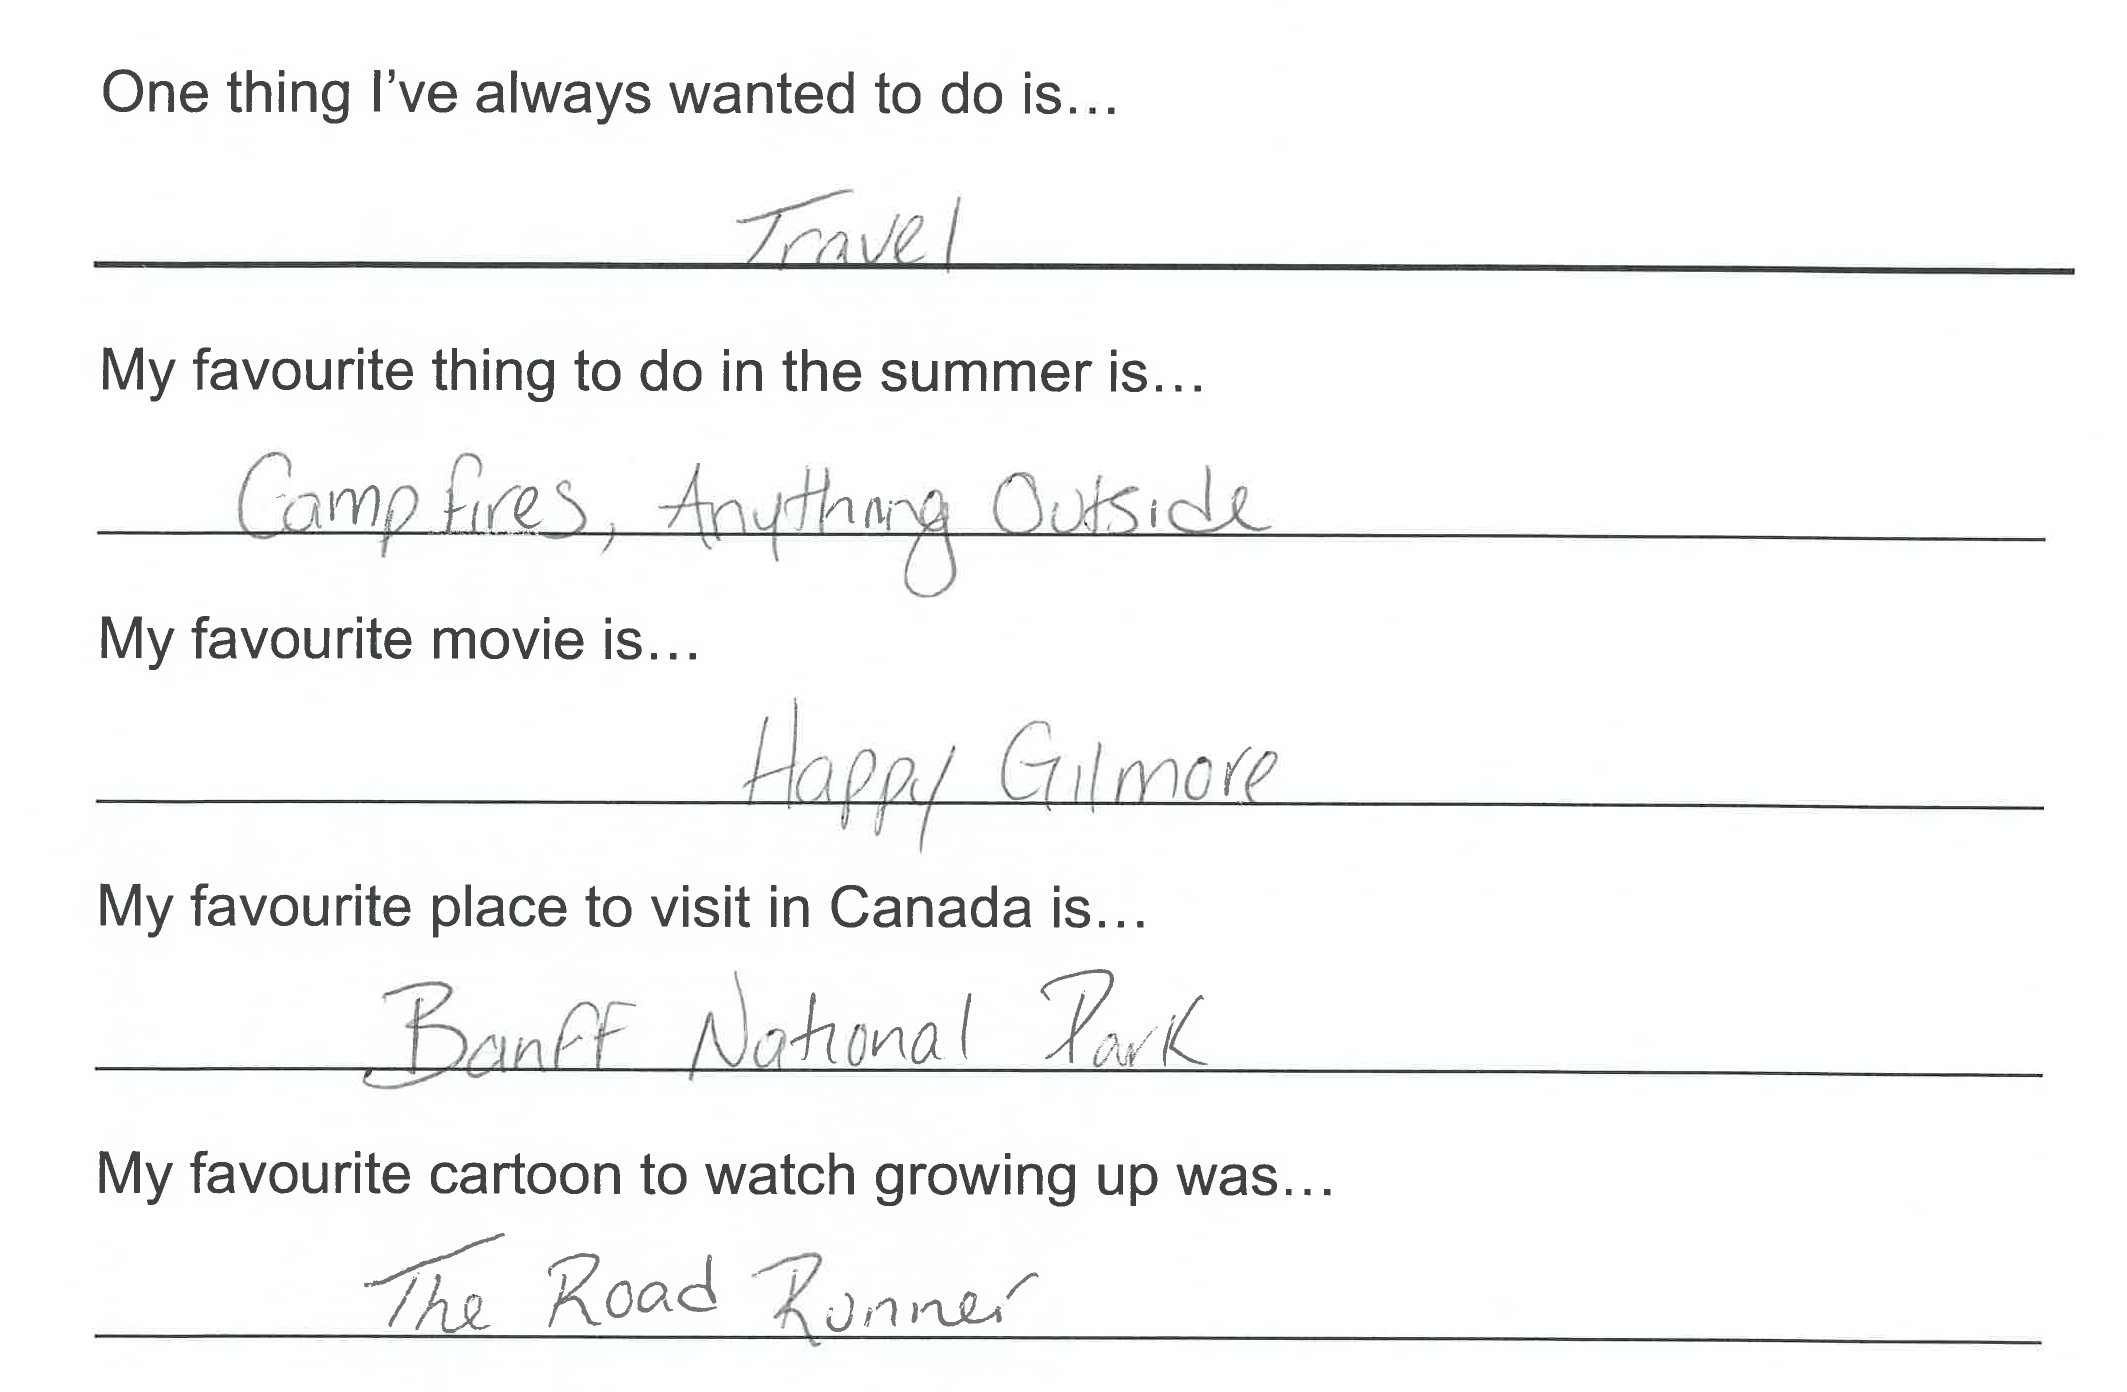 One thing I've always wanted to do is...
Travel
My favourite thing to do in the summer is...
Campfires, Anything Outside
My favourite movie is...
Happy Gilmore
My favourite place to visit in Canada is...
Banff National Park
My favourite cartoon to watch growing up was...
The Road Runner